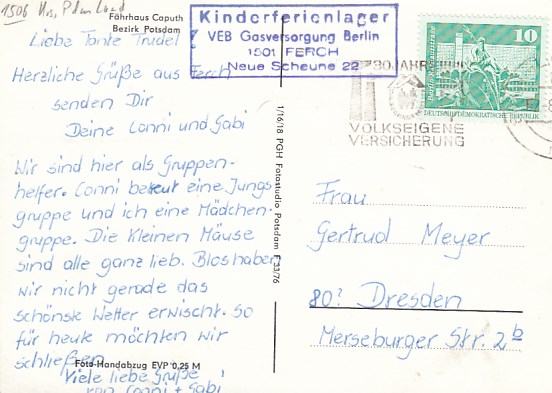 1506
Fährhaus Caputh
Bezirk Potsdam
Liebe Tante Trudel
Herzliche Grüße aus Ferch
senden Dir
Deine Conni und Gabi
Wir sind hier als Gruppen-
helfer. Conni betreut eine Jungs
gruppe und ich eine Mädchen-
gruppe. Die kleinen Mäuse
sind alle ganz lieb. Blos haben
wir nicht gerade das
schönste Wetter erwischt. So
für heute möchten wir
schließen
Foto-Handabzug EVP 0,25 M
Viele liebe Grüße
von Conni + Gabi
1/16/18 PGH Fotostudio Potsdam F 33/76
Kinderferienlager
VEB Gasversorgung Berlin
1501 FERCH
Neue Scheune 22
30 JAHRE
VOLKSEIGENE
VERSICHERUNG
10
DEUTSCHE DEMOKRATISCHE REPUBLIK
Frau
Gertrud Meyer
80? Dresden
Merseburger Str. 2b